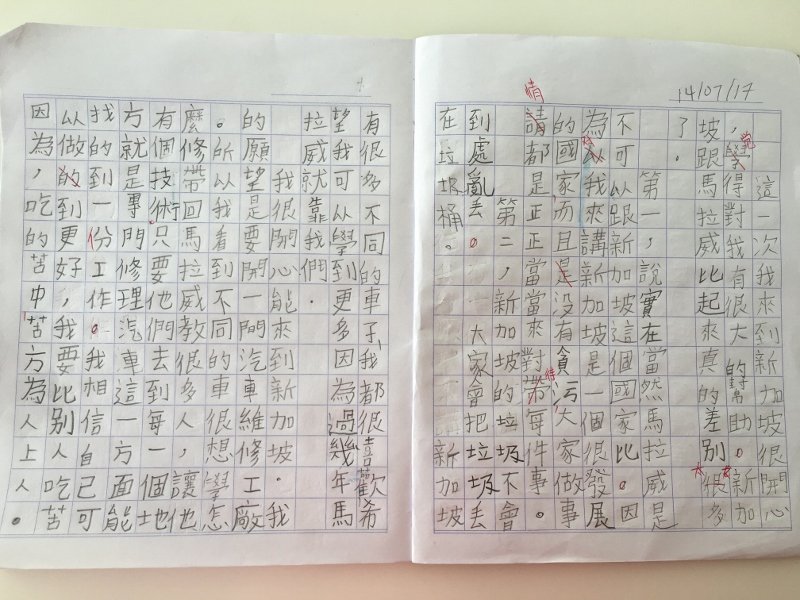 14/07/17
這一次我來到新加坡很開心
，學得對我有很大的幫助。新加
坡跟馬拉威比起來真的差別很多
了。
第一，說實在當然馬拉威是
不可以跟新加坡這個國家比。因
為以我來講新加坡是一個很發展
的國家而且是沒有貪污大家做事
請都是正正當當來對帶每件事。
第二，新加坡的垃圾不會
到處亂丟。大家會把垃圾丟
在垃圾桶。新加坡
有很多不同的車子，我都很喜歡希
望我可以學到更多因為過幾年馬
拉威就靠我們.
我很開心能來到新加坡.我
的願望是要開一間汽車維修工廠
。所以我看到不同的車很想學怎
麼修帶回馬拉威教很多人，讓他
有個技術只要他們去到每一個地
方就是專門修理汽車這一方面能
找到一份工作。我相信自己可
以做的到更好，我要比別人吃苦
因為，吃的苦中苦方為人上人。